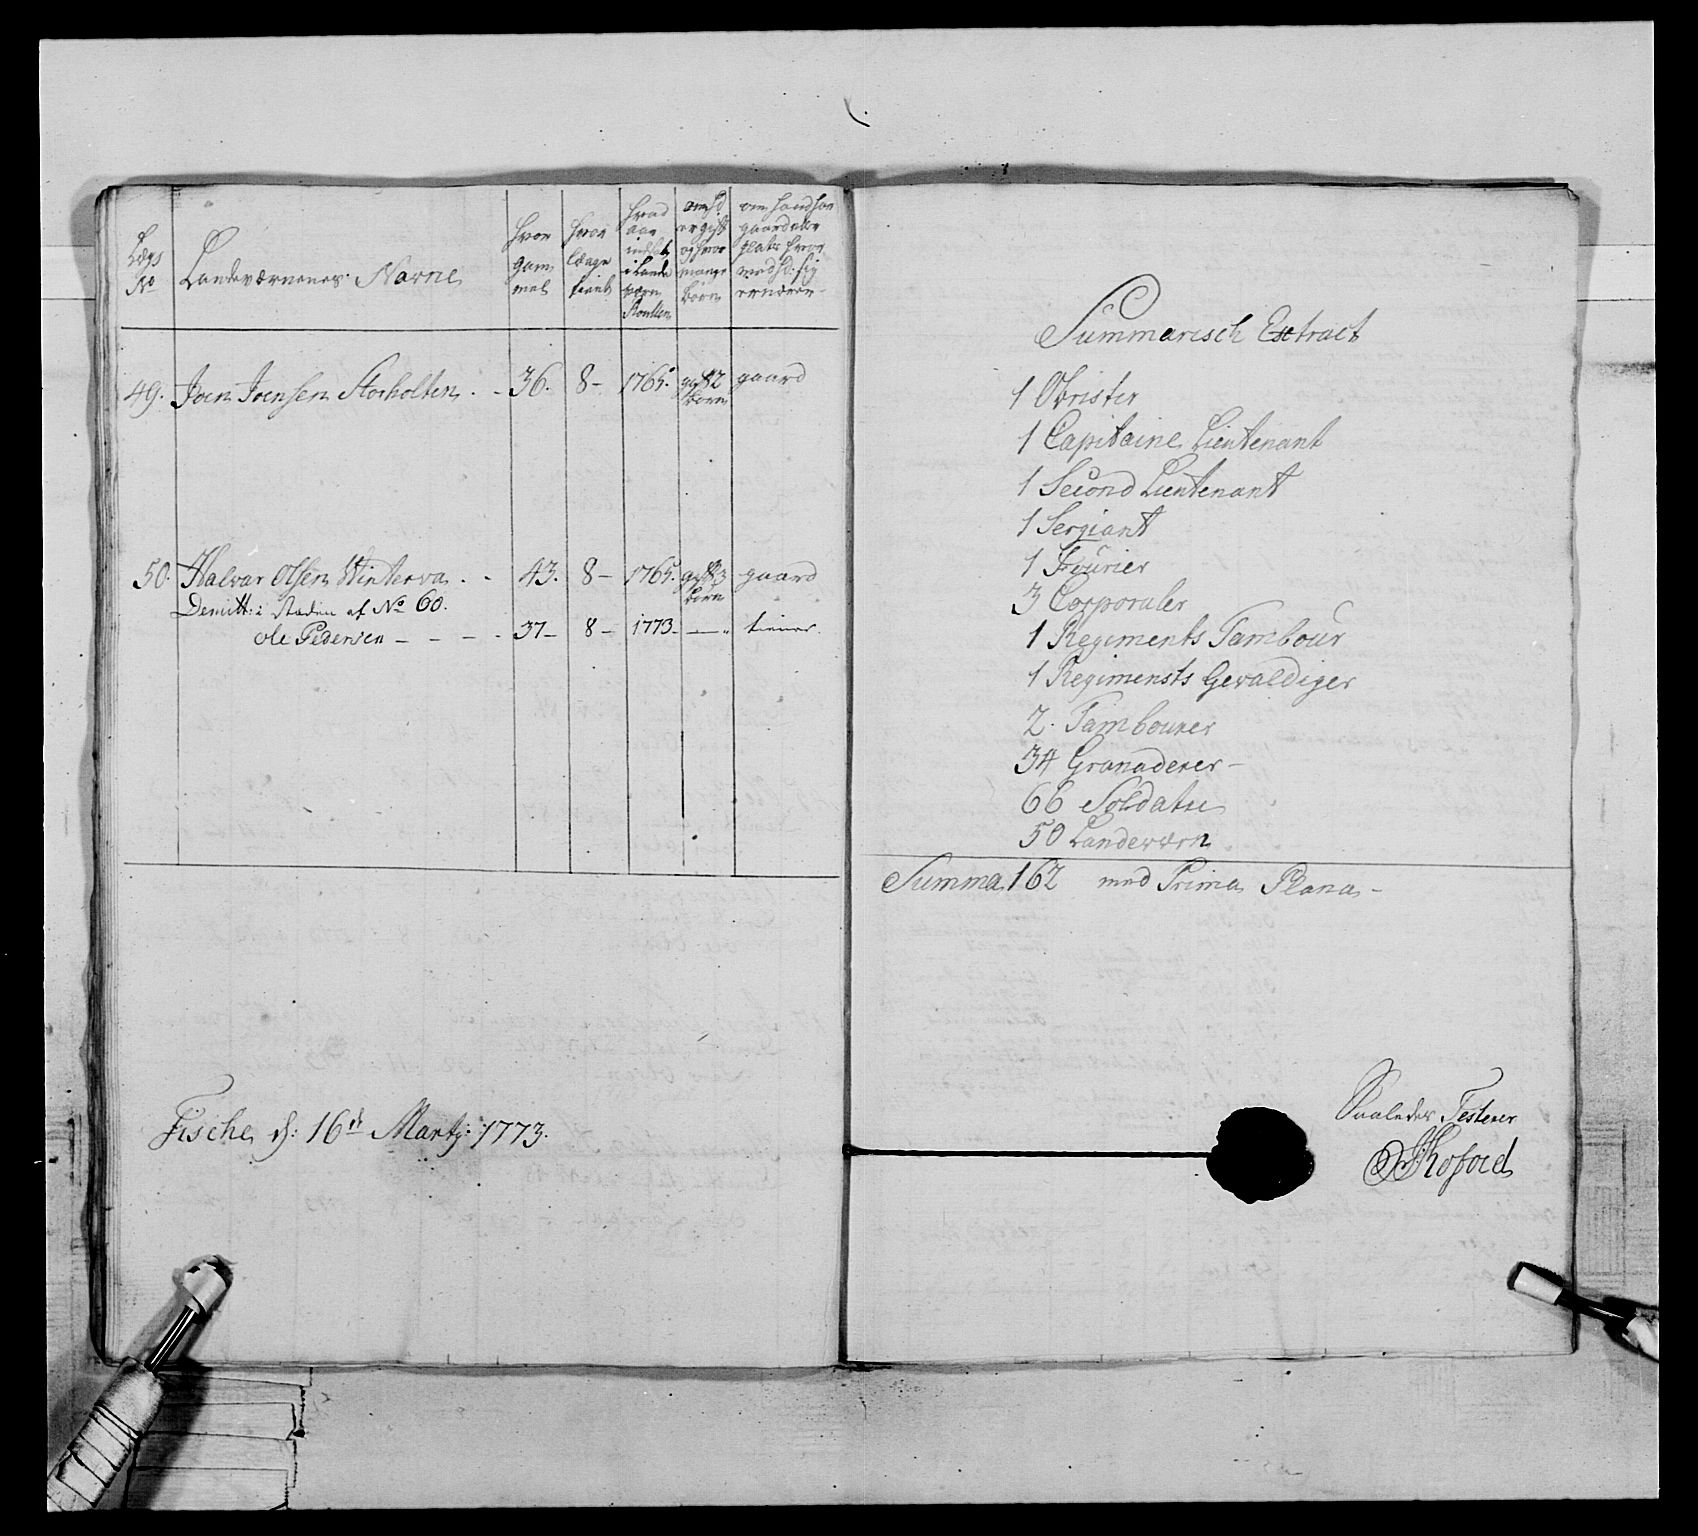 Lægs No
Landeværnenes Navne
hvor gammel
hvor længe tient
hvad aar indsat i Lande værn Roullen
om hd er gift og hvor mange børn
om hand har gaard eller plats hvor med hd: sig ernærer
49. Joen Joensen Storholten - 36. 8 - 1765. gift 2 børn gaard
50. Halvar Olsen Winterva - 43. 8 - 1765. gift 3 børn gaard
Demitt: i Steden af No 60.
Ole Pedersen - - - - 37 - 8 - 1773 - — tiener.
Fische d: 16de Martz: 1773.
Summarisch Extract
1 Obrister
1 Capitaine Lieutenant
1 Second Lieutenant
1 Sergiant
1 Fourier
3 Corporaler
1 Regiments Tambour
1 Regimensts Gevaldiger
2. Tambourer
34 Granaderer -
66 Soldater
50 Landeværn
Summa 162 med Prima Plana -
Saaledes Testerer
Koford